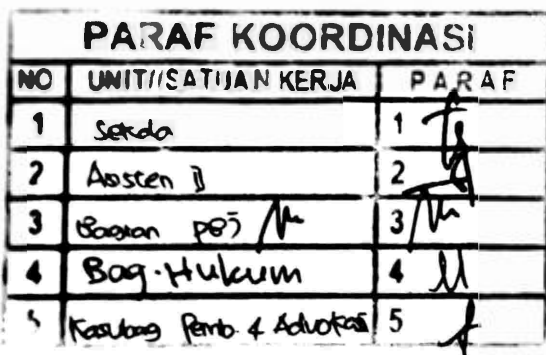 PARAF KOORDINASI
NO UNIT/SATUAN KERJA PARAF
1 Sekda 1
2 Asisten II 2
3 Bagian PBJ 3
4 Bag. Hukum 4
5 Kasubag Pemb. & Advokasi 5